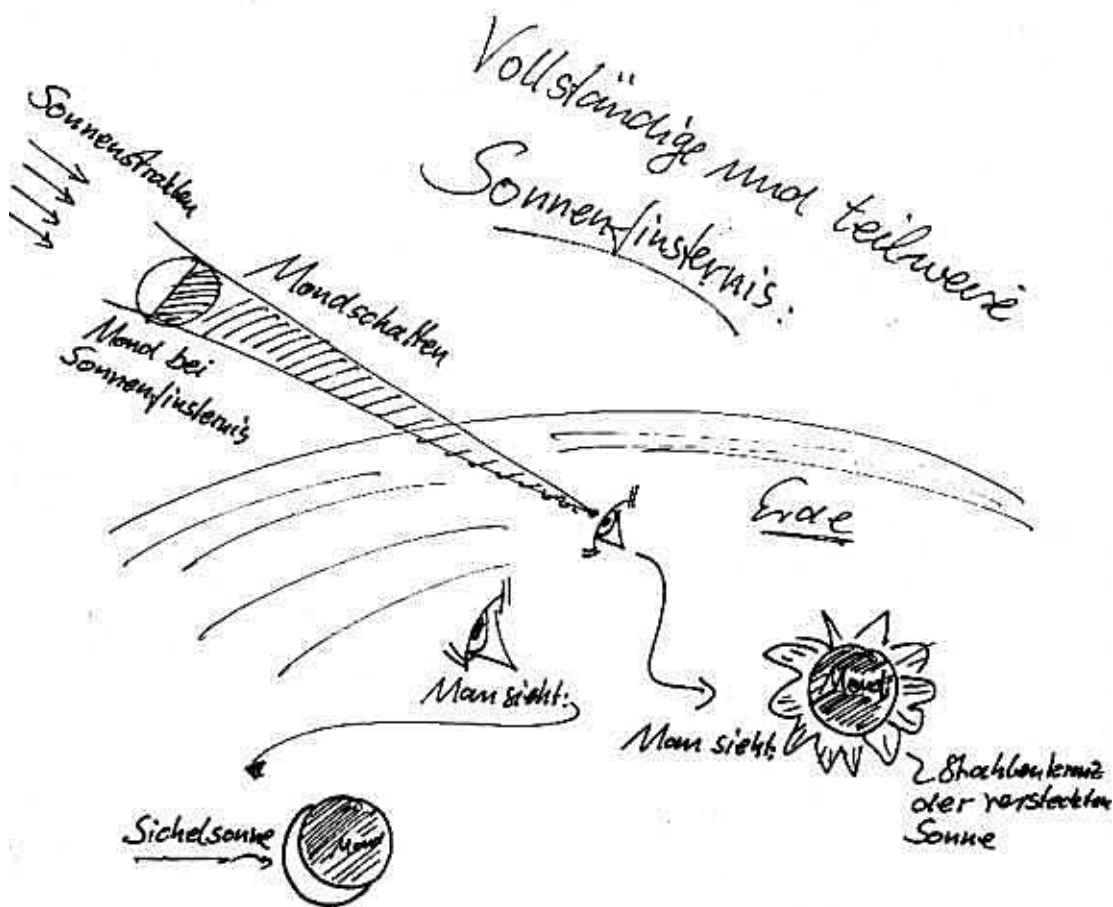 Vollständige und teilweise
Sonnenfinsternis:
Sonnenstrahlen
Mondschatten
Mond bei
Sonnenfinsternis
Erde
Man sieht:
Mond
Man sieht:
Strahlenkranz
der versteckten
Sonne
Sichelsonne
Mond